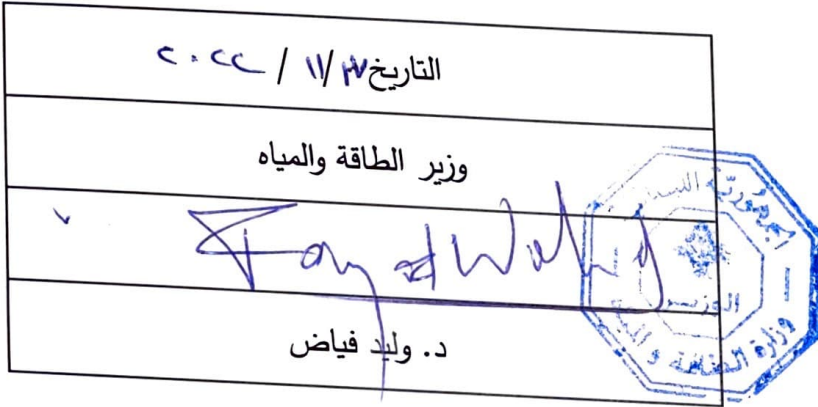 التاريخ ٢٧/ ١١ / ٢٠٢٢
وزير الطاقة والمياه
Fayad Walid
د. وليد فياض
الجمهورية اللبنانية
الوزير
وزارة الطاقة و المياه